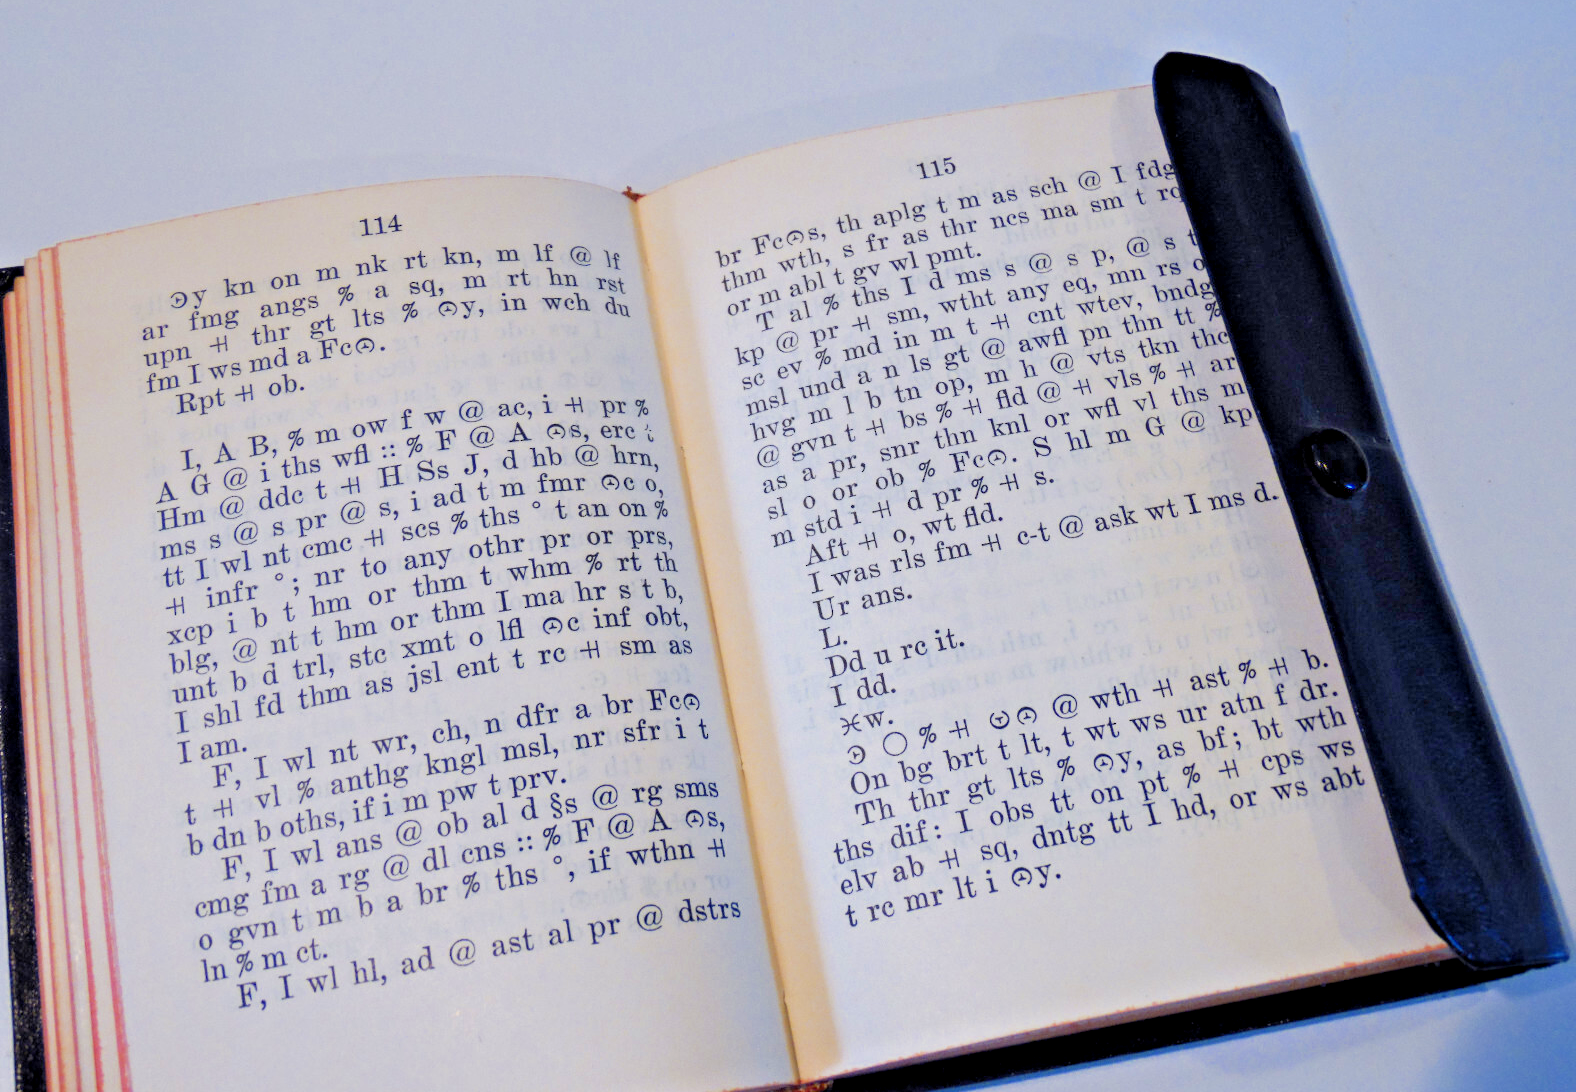 114
☉y kn on m nk rt kn, m lf @ lf
ar fmg angs % a sq, m rt hn rst
upn ⁜ thr gt lts % ☉y, in wch du
fm I ws md a Fc☉.
Rpt ⁜ ob.
I, A B, % m ow f w @ ac, i ⁜ pr %
A G @ i ths wfl :: % F @ A ☉s, erc
Hm @ ddc t ⁜ H Ss J, d hb @ hrn,
ms s @ s pr @ s, i ad t m fmr ☉c o,
tt I wl nt cmc ⁜ scs % ths ° t an on %
⁜ infr °; nr to any othr pr or prs,
xcp i b t hm or thm t whm % rt th
blg, @ nt t hm or thm I ma hr s t b,
unt b d trl, stc xmt o lfl ☉c inf obt,
I shl fd thm as jsl ent t rc ⁜ sm as
I am.
F, I wl nt wr, ch, n dfr a br Fc☉
t ⁜ vl % anthg kngl msl, nr sfr i t
b dn b oths, if i m pw t prv.
F, I wl ans @ ob al d §s @ rg sms
cmg fm a rg @ dl cns :: % F @ A ☉s,
o gvn t m b a br % ths °, if wthn ⁜
ln % m ct.
F, I wl hl, ad @ ast al pr @ dstrs
115
br Fc☉s, th aplg t m as sch @ I fdg
thm wth, s fr as thr ncs ma sm t rq
or m abl t gv wl pmt.
T al % ths I d ms s @ s p, @ s t
kp @ pr ⁜ sm, wtht any eq, mn rs o
sc ev % md in m t ⁜ cnt wtev, bndg
msl und a n ls gt @ awfl pn thn tt %
hvg m l b tn op, m h @ vts tkn thc
@ gvn t ⁜ bs % ⁜ fld @ ⁜ vls % ⁜ ar
as a pr, snr thn knl or wfl vl ths m
sl o or ob % Fc☉. S hl m G @ kp
m std i ⁜ d pr % ⁜ s.
Aft ⁜ o, wt fld.
I was rls fm ⁜ c-t @ ask wt I ms d.
Ur ans.
L.
Dd u rc it.
I dd.
♓w.
☉ ○ % ⁜ ☉☉ @ wth ⁜ ast % ⁜ b.
On bg brt t lt, t wt ws ur atn f dr.
Th thr gt lts % ☉y, as bf; bt wth
ths dif: I obs tt on pt % ⁜ cps ws
elv ab ⁜ sq, dntg tt I hd, or ws abt
t rc mr lt i ☉y.